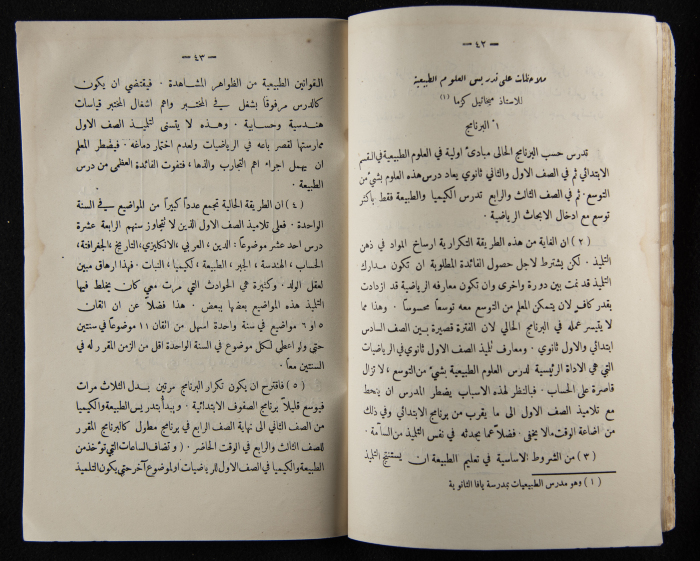 — ٤٢ —
ملاحظات على تدريس العلوم الطبيعية
للاستاذ ميخائيل كرما (١)
١ً البرنامج
تدرس حسب البرنامج الحالى مبادىء اولية في العلوم الطبيعية في القسم
الابتدائي ثم في الصف الاول والثاني ثانوي يعاد درس هذه العلوم بشيء من
التوسع . ثم في الصف الثالث والرابع تدرس الكيميا والطبيعة فقط باكثر
توسع مع ادخال الابحاث الرياضية .
( ٢ ) ان الغاية من هذه الطريقة التكرارية ارساخ المواد في ذهن
التلميذ . لكن يشترط لاجل حصول الفائدة المطلوبة ان تكون مدارك
التلميذ قد نمت بين دورة واخرى وان تكون معارفه الرياضية قد ازدادت
بقدر كاف لان يتمكن المعلم من التوسع معه توسعاً محسوساً . وهذا مما
لا يتيسر عمله في البرنامج الحالي لان الفترة قصيرة بين الصف السادس
ابتدائي والاول ثانوي . ومعارف تلميذ الصف الاول ثانوي في الرياضيات
التي هي الاداة الرئيسية لدرس العلوم الطبيعية بشيء من التوسع ، لا تزال
قاصرة على الحساب . فبالنظر لهذه الاسباب يضطر المدرس ان ينحط
مع تلاميذ الصف الاول الى ما يقرب من برنامج الابتدائي وفي ذلك
من اضاعة الوقت ما لا يخفى . فضلاً عما يحدثه في نفس التلميذ من السآمة .
( ٣ ) من الشروط الاساسية في تعليم الطبيعة ان يستنتج التلميذ
( ١ ) وهو مدرس الطبيعيات بمدرسة يافا الثانوية
— ٤٣ —
القوانين الطبيعية من الظواهر المشاهدة . فيقتضي ان يكون
كالدرس مرفوقاً بشغل في المختبر واهم اشغال المختبر قياسات
هندسية وحسابية . وهذه لا يتسنى لتلميذ الصف الاول
ممارستها لقصر باعه في الرياضيات ولعدم اختبار دماغه . فيضطر المعلم
ان يهمل اجراء اهم التجارب والذها ، فتفوت الفائدة العظمى من درس
الطبيعة .
( ٤ ) ان الطريقة الحالية تجمع عدداً كبيراً من المواضيع في السنة
الواحدة . فعلى تلاميذ الصف الاول الذين لا تتجاوز سنهم الرابعة عشرة
درس احد عشر موضوعاً : الدين ، العربي ، الانكليزي ، التاريخ ، الجغرافية ،
الحساب ، الهندسة ، الجبر ، الطبيعة ، لكيميا ، النبات . فهذا ارهاق مبين
لعقل الولد . وكثيرة هي الحوادث التي مرت معي كان يخلط فيها
التلميذ هذه المواضيع بعضها ببعض . هذا فضلاً عن ان اتقان
٥ او ٦ مواضيع في سنة واحدة اسهل من اتقان ١١ موضوعاً في سنتين
حتى ولو اعطى لكل موضوع في السنة الواحدة اقل من الزمن المقرر له في
السنتين معاً .
( ٥ ) فاقترح ان يكون تكرار البرنامج مرتين بدل الثلاث مرات
فيوسع قليلاً برنامج الصفوف الابتدائية . ويبدأ بتدريس الطبيعة والكيميا
من الصف الثاني الى نهاية الصف الرابع في برنامج مطول كالبرنامج المقرر
للصف الثالث والرابع في الوقت الحاضر . ( و تضاف الساعات التي تؤخذ من
الطبيعة والكيميا في الصف الاول للرياضيات او لموضوع آخر حتى يكون التلميذ